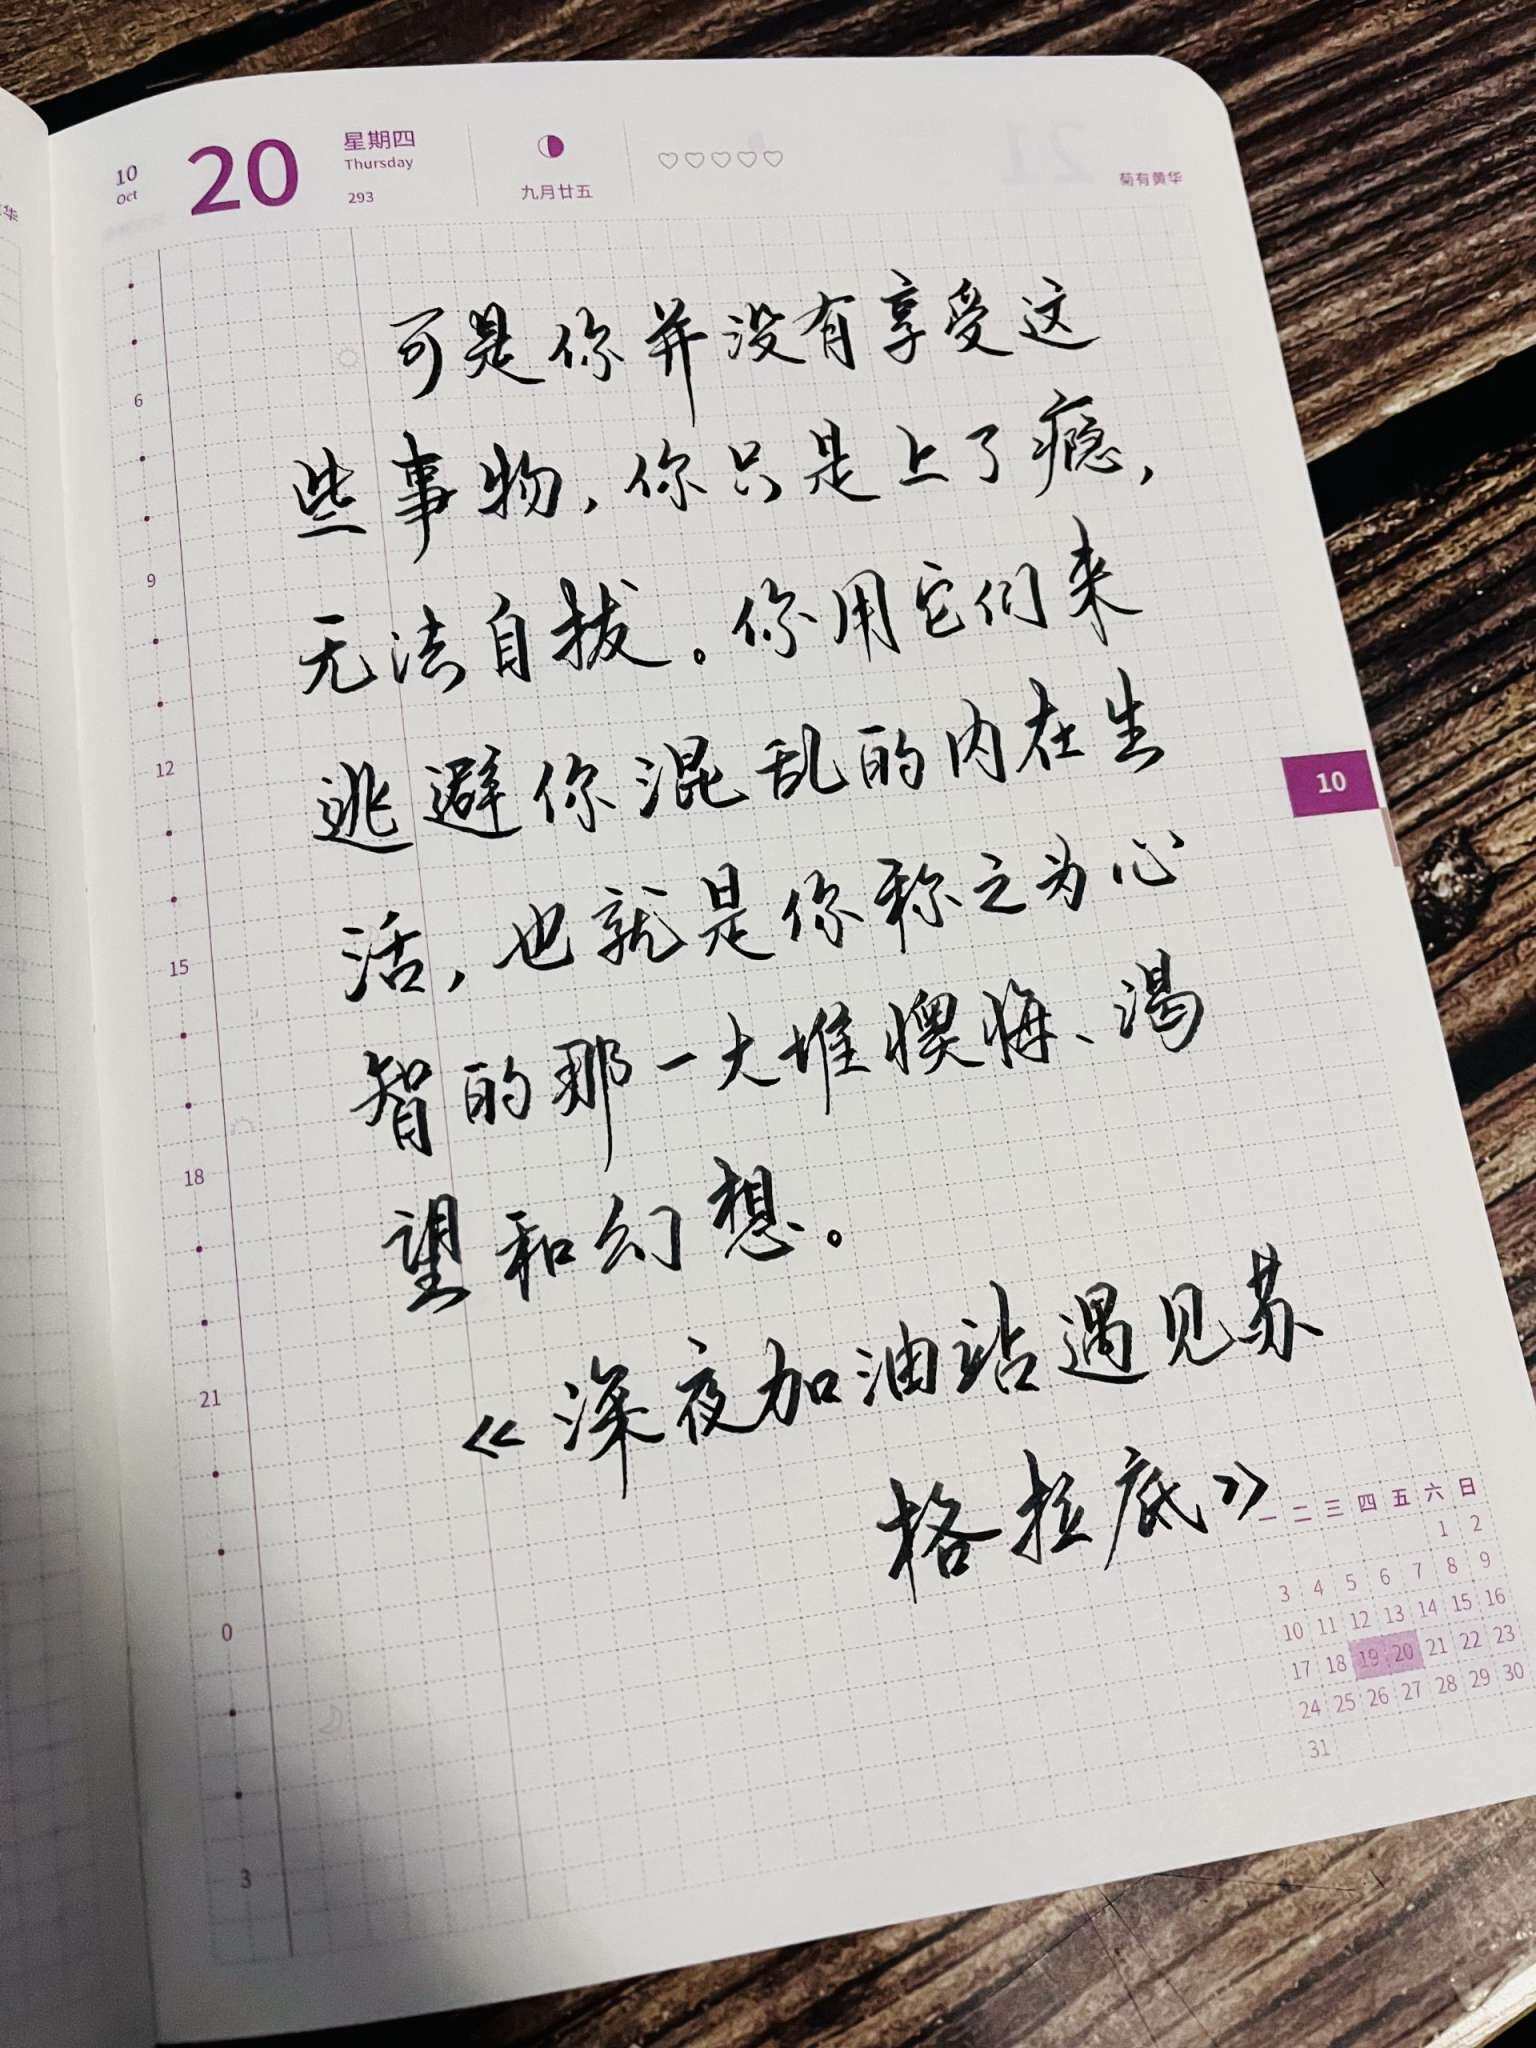 10
Oct
20
星期四
Thursday
293
九月廿五
菊有黄华
可是你并没有享受这
些事物,你只是上了瘾,
无法自拔。你用它们来
逃避你混乱的内在生
活,也就是你称之为心
智的那一大堆懊悔、渴
望和幻想。
《深夜加油站遇见苏
格拉底》
6
9
12
15
18
21
0
3
10
一 二 三 四 五 六 日
1 2
3 4 5 6 7 8 9
10 11 12 13 14 15 16
17 18 19 20 21 22 23
24 25 26 27 28 29 30
31